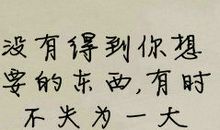 没有得到你想
要的东西,有时
不失为一大